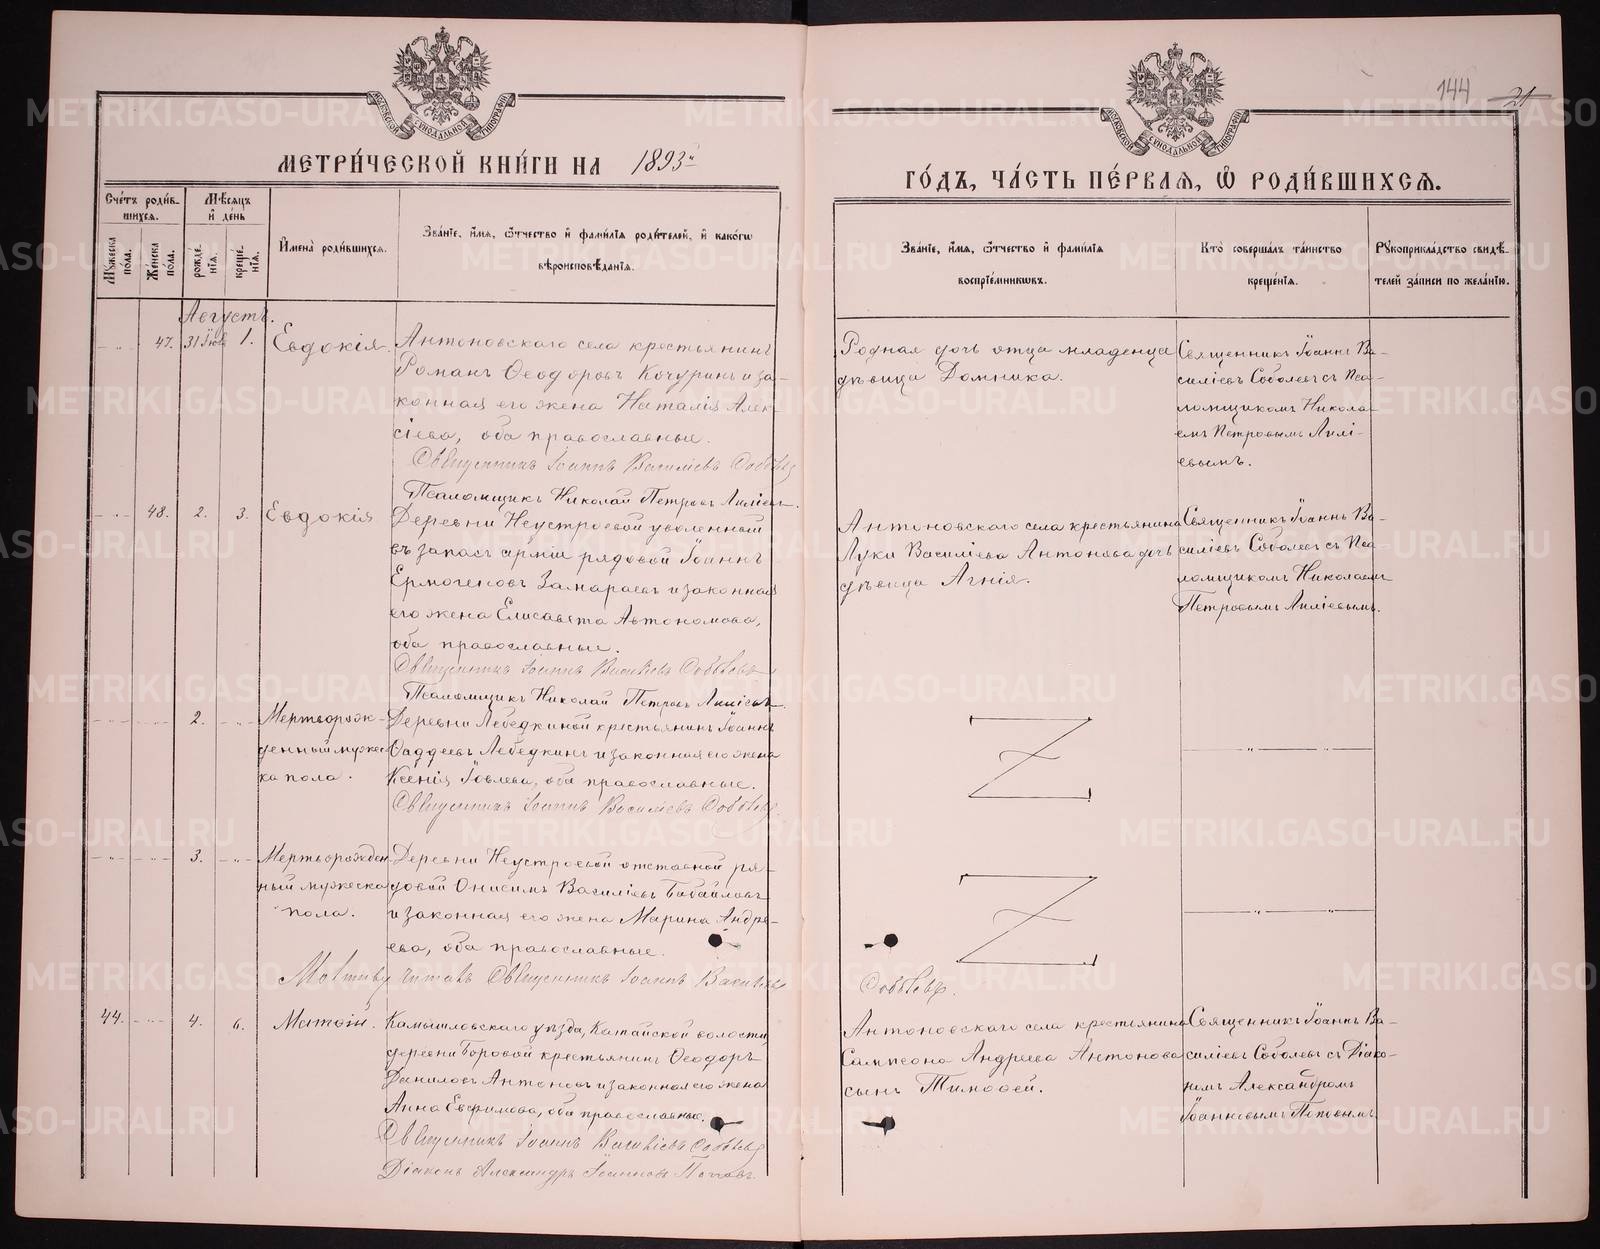 144 21
МЕТРИ́ЧЕСКОЙ КНИ́ГИ НА 1893й
ГО́ДЪ, ЧА́СТЬ ПЕ́РВАѦ, Ѽ РОДИ́ВШИХСѦ.
Сче́тъ роди́в-
шихся.
Мѣ́сяцъ
и̂ де́нь
Мꙋжеска
пола.
Же́нска
по́ла.
рожде́-
нїѧ.
креще́-
нїѧ.
И̂мена̀ роди́вшихся.
Зва́нїе, и́мѧ, ѻ́тчество и̂ фами́лїѧ роди́телей, и̂ како́гѡ
вѣроисповѣ́данїѧ.
Зва́нїе, и́мѧ, ѻ́тчество и̂ фами́лїѧ
воспрїе́мникѡвъ.
Кто̀ соверша́лъ та́инство
креще́нїѧ.
Рꙋкоприкла́дство свидѣ́-
телей за́писи по жела́нїю.
Августъ.
47. 31 Іюля 1. Евдокія. Антоновскаго села крестьянинъ
Романъ Ѳеодоровъ Кочуринъ и за-
конная его жена Наталія Алек-
сіева, оба православные.
Священникъ Іоаннъ Василіевъ Соболевъ
Псаломщикъ Николай Петровъ Лиліевъ.
Родная дочь отца младенца
дѣвица Домника.
Священникъ Іоаннъ Ва-
силіевъ Соболевъ съ Пса-
ломщикомъ Никола-
емъ Петровымъ Лилі-
евымъ.
48. 2. 3. Евдокія Деревни Неустроевой уволенный
въ запасъ арміи рядовой Іоаннъ
Ермогеновъ Замараевъ и законная
его жена Елисавета Автономова,
оба православные.
Священникъ Іоаннъ Василіевъ Соболевъ
Псаломщикъ Николай Петровъ Лиліевъ.
Антоновскаго села крестьянина
Луки Василіева Антонова дочь
дѣвица Агнія.
Священникъ Іоаннъ Ва-
силіевъ Соболевъ съ Пса-
ломщикомъ Николаемъ
Петровымъ Лиліевымъ.
2. Мертворож- Деревни Лебедкиной крестьянинъ Іоаннъ
денный мужес- Ѳаддеевъ Лебедкинъ и законная его жена
ка пола. Ксенія Іовлева, оба православные.
Священникъ Іоаннъ Василіевъ Соболевъ
3. Мертворожден- Деревни Неустроевой отставной ря-
ный мужеска довой Онисимъ Василіевъ Бабайловъ
пола. и законная его жена Марина Андре-
ева, оба православные.
читалъ Священникъ Іоаннъ Василіевъ
Соболевъ.
44. 4. 6. Матѳій. Камышловскаго уѣзда, Катайской волости,
деревни Боровой крестьянинъ Ѳеодоръ
Даниловъ Антоновъ и законная его жена
Анна Евфимова, оба православные.
Священникъ Іоаннъ Василіевъ Соболевъ
Діаконъ Александръ Іоанновъ Поповъ.
Антоновскаго села крестьянина
Сампсона Андреева Антонова
сынъ Тимоѳей.
Священникъ Іоаннъ Ва-
силіевъ Соболевъ съ Діако-
номъ Александромъ
Іоанновымъ Поповымъ.
METRIKI.GASO-URAL.RU